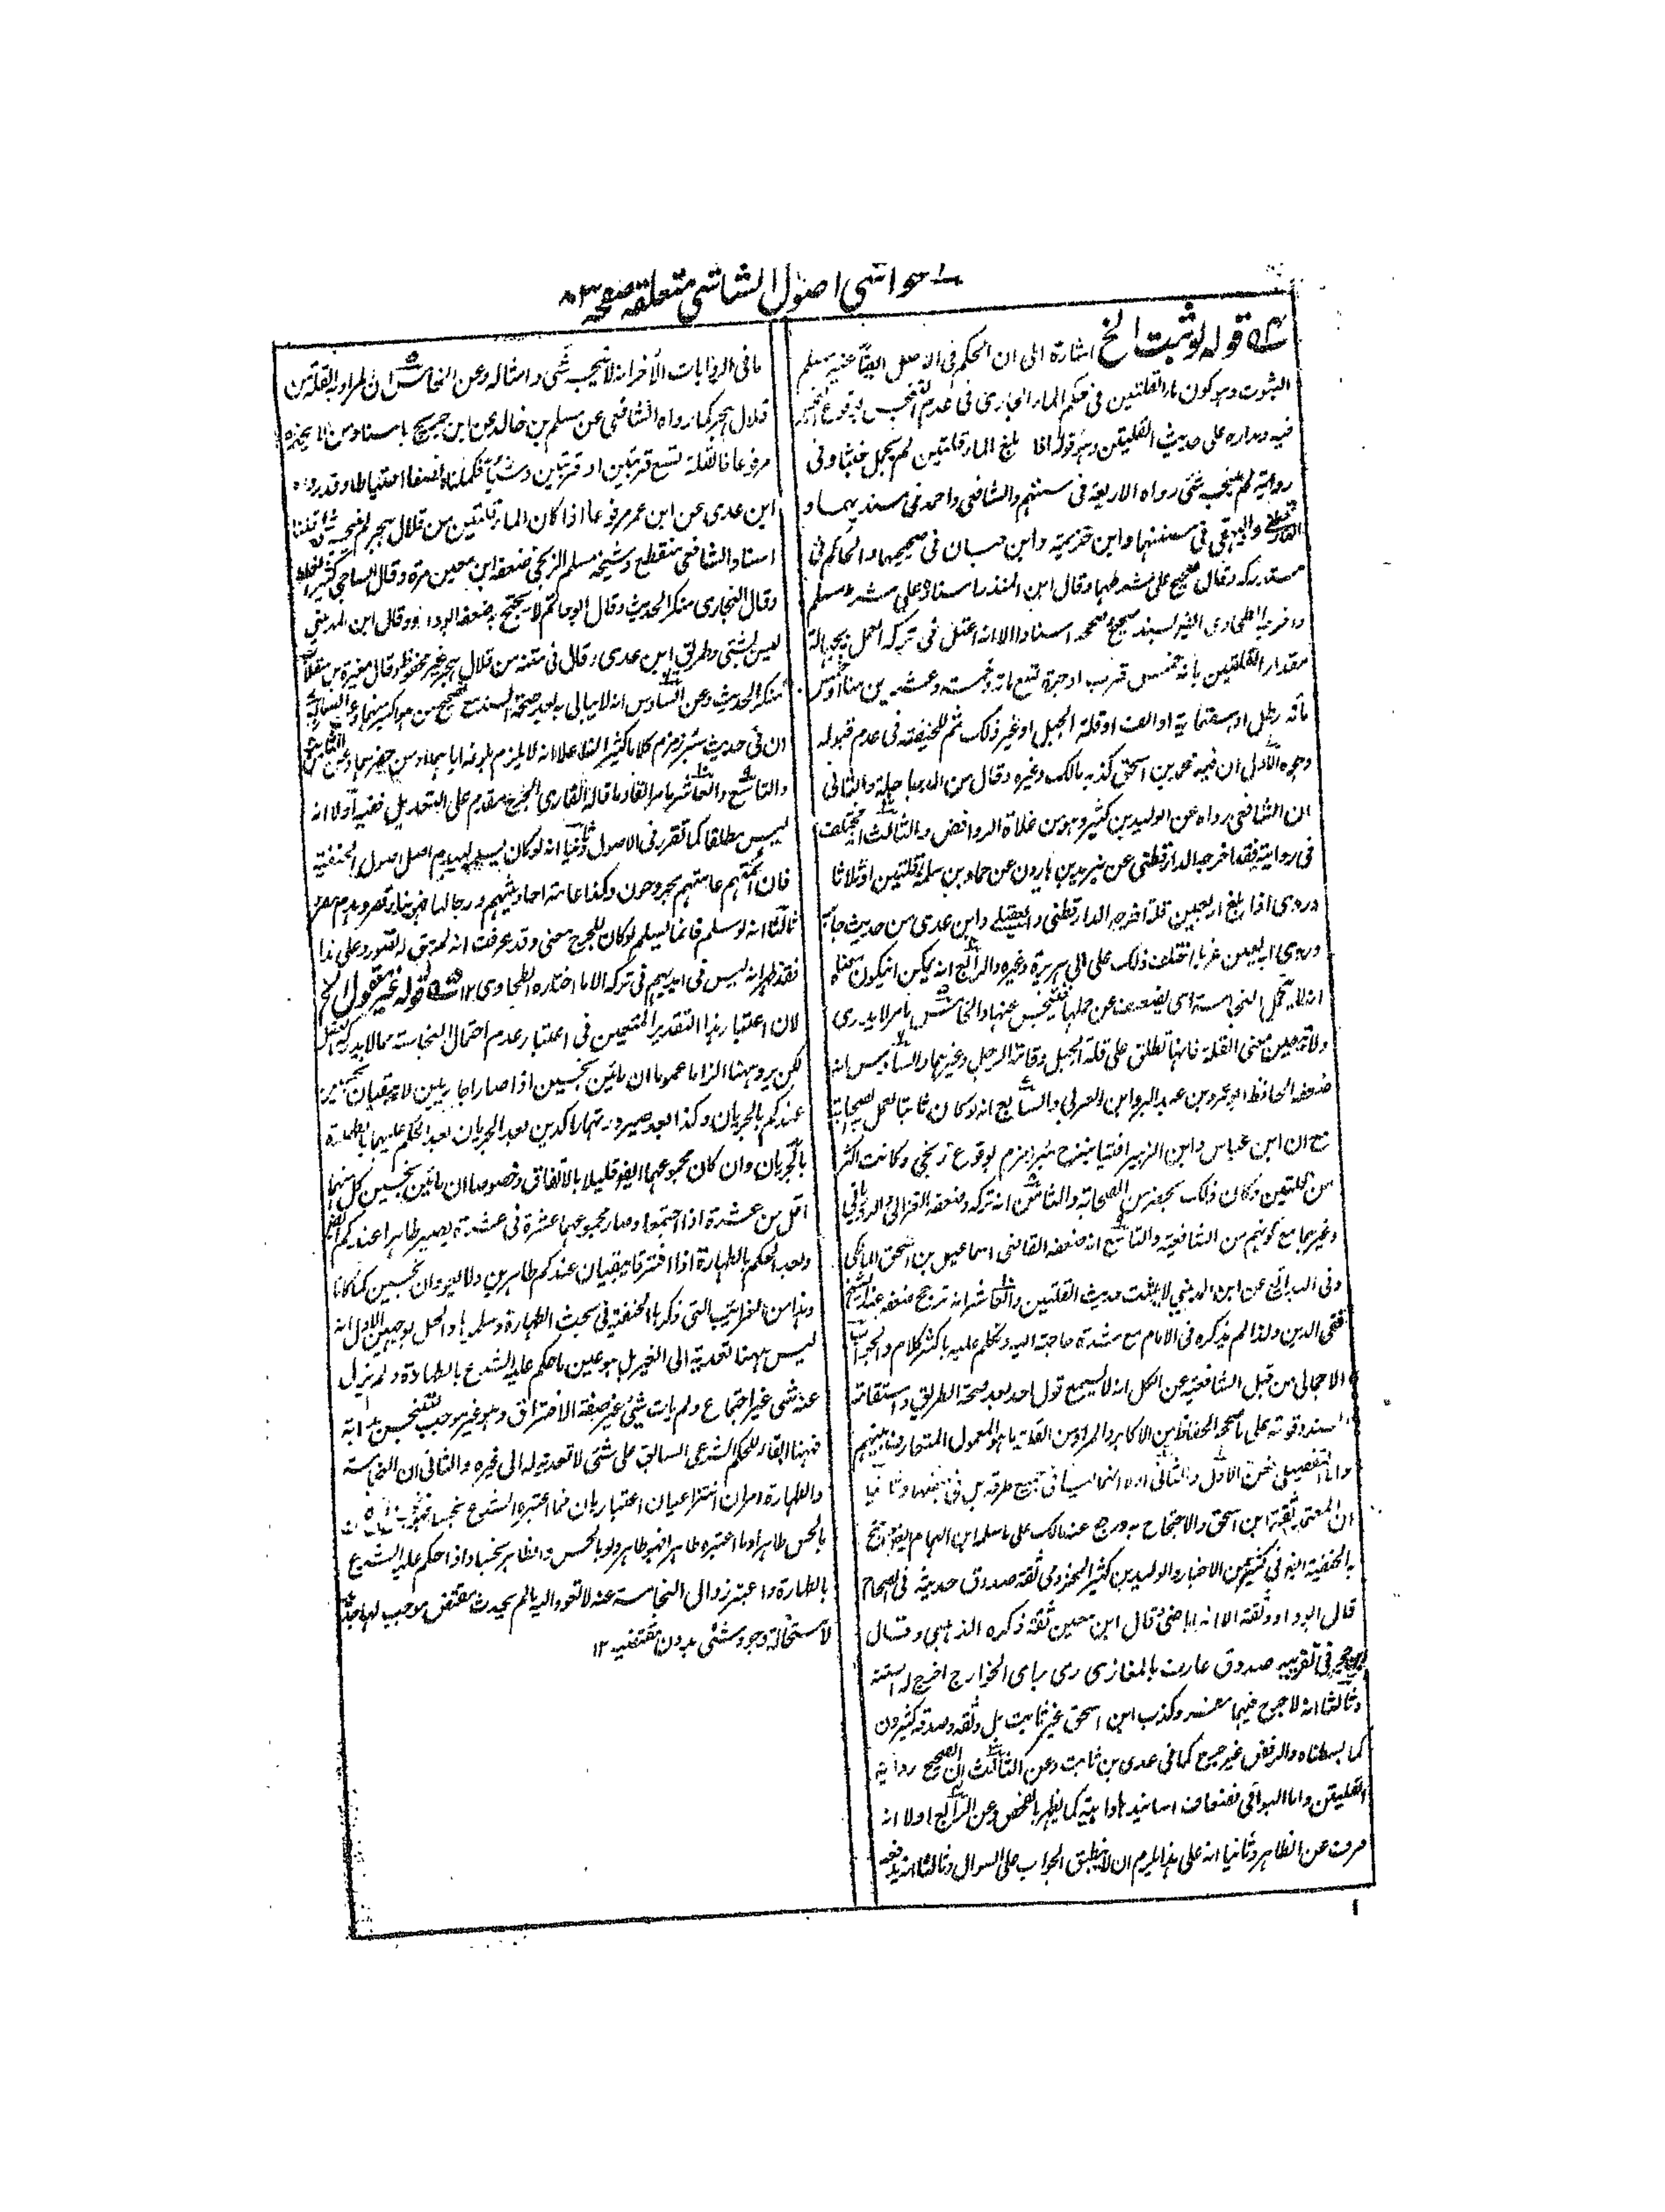 حواشی اصول الشاشی متعلقہ صفحہ
قولہ لو ثبت الخ اشارة الى ان الحكم فی الاصل ايضا غير مسلم
الثبوت وہو كون ماء القلتين فی حكم الماء الجاری فی عدم التنجس بوقوع النجس
فيہ ومداره على حديث القلتين وہو قولہ اذا بلغ الماء قلتين لم يحمل خبثا وفی
رواية لم ينجسہ شئ رواه الاربعة فی سننہم والشافعی واحمد فی مسنديہما و
الدارقطنی والبيہقی فی سننہما وابن خزيمة وابن حبان فی صحيحہما والحاكم فی
مستدركہ وقال صحيح على شرطہما وقال ابن المنذر اسناده على شرط مسلم
واخرجہ الطحاوی ايضا بسند صحيح وصححہ اسنادا الا انہ اعتل فی تركہ العمل بجہالة
مقدار القلتين بانہ خمس قرب او جرة تسع مائة وخمسة وعشرين منا او خمس
مأة رطل او ستمائة او الف او قلة الجبل او غير ذلك ثم للحنفية فی عدم قبولہ
وجوه الاول ان فيہ محمد بن اسحق كذبہ مالك وغيره وقال من الدجاجلة والثانی
ان الشافعی رواه عن الوليد بن كثير وہو من غلاة الروافض والثالث انہ مختلف
فی روايتہ فقد اخرجہ الدارقطنی عن يزيد بن ہارون عن حماد بن سلمة قلتين او ثلاثا
وروی اذا بلغ اربعين قلة اخرجہ الدارقطنی والعقيلی وابن عدی من حديث جابر
وروی اربعين غربا اختلف ذلك على ابی ہريرة وغيره والرابع انہ يمكن ان يكون معناه
انہ لا يتحمل النجاسة ای يضعف عن حملہا فيتنجس عنہا والخامس بامر لا يدری
ولا تعيين معنى القلة فانہا تطلق على قلة الجبل وقامة الرجل وغيرہما والسادس انہ
ضعفہ الحافظ ابو عمرو بن عبد البر وابن العربی والسابع انہ لو كان ثابتا لعمل الصحابة
مع ان ابن عباس وابن الزبير افتيا بنزح بئر زمزم لوقوع زنجی وكانت اكثر
من قلتين وكان ذلك بمحضر من الصحابة والثامن انہ تركہ وضعفہ الغزالی والرويانی
وغيرہما مع كونہم من الشافعية والتاسع انہ ضعفہ القاضی اسماعيل بن اسحق المالكی
وفی البدائع عن ابن المدينی لا يثبت حديث القلتين والعاشر انہ ترجح ضعفہ عند الشيخ
تقی الدين ولذا لم يذكره فی الامام مع شدة حاجتہ اليہ وتكلم عليہ باكثر كلام والجواب
الاجمالی من قبل الشافعية عن الكل انہ لا يسمع قول احد بعد صحة الطريق واستقامة
السند وقوتہ على ما صححہ الحفاظ من الاكابر والمراد من القلة ما ہو المعمول المتعارف بينہم
واما التفصيلی فعن الاول والثانی
ان المعتمد ثقة ابن اسحق والاحتجاج بہ ورجع عنہ مالك على ما سلمہ ابن الہمام
بہ الحنفية ايضا فی كثير من الاخبار والوليد بن كثير المخزومی ثقة صدوق حديثہ فی الصحاح
قال ابو داود ثقة الا انہ اباضی وقال ابن معين ثقة ذكره الذہبی وقال
ابن حجر فی تقريبہ صدوق عارف بالمغازی رمی برای الخوارج اخرج لہ الستة
وثالثا انہ لا جرح فيہما مفسر وكذب ابن اسحق غير ثابت بل وثقہ وصدقہ كثيرون
كما بسطناه والرفض غير جرح كما فی عدی بن ثابت وعن الثالث ان الصحيح رواية
القلتين واما البواقی فضعاف اسانيدہا واہية كما يظہر بالفحص وعن الرابع اولا انہ
صرف عن الظاہر وثانيا انہ على ہذا يلزم ان لا ينطبق الجواب على السوال وثالثا انہ يدفعہ
ما فی الروايات الأخر انہ لا ينجسہ شئ وامثالہ وعن الخامس ان المراد بالقلة من
قلال ہجر كما رواه الشافعی عن مسلم بن خالد عن ابن جريج باسناد من لا يحضره
مرفوعا فالقلة تسع قربتين او قربتين وشيئا فكملناه نصفا احتياطا وقد رواه
ابن عدی عن ابن عمر مرفوعا اذا كان الماء قلتين من قلال ہجر لم ينجسہ شئ قلنا
اسناد الشافعی منقطع وشيخہ مسلم الزنجی ضعفہ ابن معين مرة وقال الساجی كثير الغلط
وقال البخاری منكر الحديث وقال ابو حاتم لا يحتج بہ ضعفہ ابو داود وقال ابن المدينی
ليس بشئ وطريق ابن عدی وقال فی متنہ من قلال ہجر غير محفوظ وقال مغيرة بن سقلاب
منكر الحديث وعن السادس انہ لا يبالی بہ بعد صحة السند
ان فی حديث بئر زمزم كلاما كثيرا
والتاسع والعاشر ما مر انفا وما قالہ القاری الجرح مقدم على التعديل ففيہ اولا انہ
ليس مطلقا كما تقرر فی الاصول وثانيا انہ لو كان يسلم لہدم اصل اصول الحنفية
فان ائمتہم عامتہم مجروحون وكذا عامة احاديثہم ورجالہا
ثالثا انہ لو سلم فانما يسلم لو كان للجرح معنى وقد عرفت انہ لم يبق لہ
فقد ظہر انہ ليس فی ايديہم فی تركہ الا ما اختاره الطحاوی ۱۲ قولہ غير معقول الخ
لان اعتبار ہذا التقدير المتعين فی اعتبار عدم احتمال النجاسة مما لا يدركہ العقل
لكن يرد ہہنا الزاما عموما ان مائين نجسين اذا صارا جاريين لا يبقيان نجسين
عندكم بالجريان وكذا بعد صيرورتہما راكدين بعد الجريان بعد الحكم عليہما بالطہارة
بالجريان وان كان مجموعہما ايضا قليلا بالاتفاق وخصوصا ان مائين نجسين كل منہما
اقل من عشرة اذا اجتمعا وصار مجموعہما عشرة فی عشرة يصير طاہرا عندكم
وبعد الحكم بالطہارة اذا افترقا يبقيان عندكم طاہرين ولا يعودان نجسين كما كانا
وہذا من الغرائب التی ذكرہا الحنفية فی بحث الطہارة وسلموہا والحل بوجہين الاول انہ
ليس ہہنا تعدية الى الغير بل ہو عين ما حكم عليہ الشرع بالطہارة ولم يزل
عنہ شئ غير اجتماع ولم يات شئ غير صفة الافتراق وہو غير موجب للتنجس
فہہنا ابقاء للحكم الشرعی السابق على شئ لا تعدية لہ الى غيره والثانی ان النجاسة
والطہارة امران انتزاعيان اعتباريان فما اعتبره الشرع نجسا فنجس
بالحس طاہرا وما اعتبره طاہرا فہو طاہر ولو بالحس والظاہر نجسا واذا حكم عليہ الشرع
بالطہارة واعتبر زوال النجاسة عنہ لا تعود اليہ ما لم يحدث مقتض موجب لہا
لاستحالة وجود شئ بدون مقتضيہ ۱۲